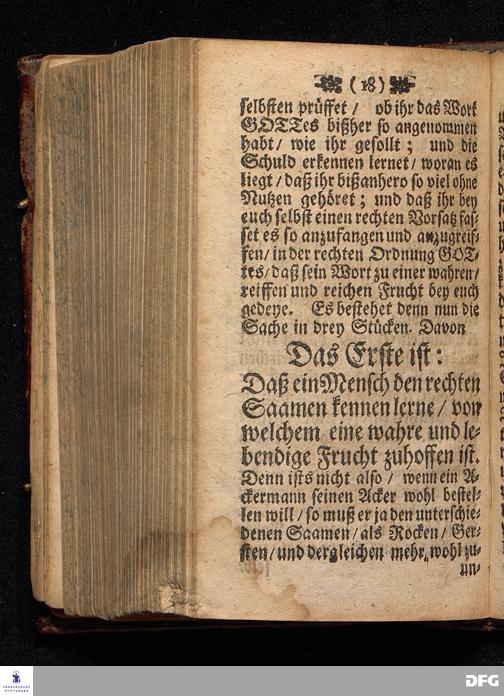 (18)
selbsten prüffet / ob ihr das Wort
GOTTes bißher so angenommen
habt / wie ihr gesollt ; und die
Schuld erkennen lernet / woran es
liegt / daß ihr bißanhero so viel ohne
Nutzen gehöret ; und daß ihr bey
euch selbst einen rechten Vorsatz fas-
set es so anzufangen und anzugreif-
fen / in der rechten Ordnung GOT-
tes / daß sein Wort zu einer wahren /
reiffen und reichen Frucht bey euch
gedeye. Es bestehet denn nun die
Sache in drey Stücken. Davon
Das Erste ist :
Daß ein Mensch den rechten
Saamen kennen lerne / von
welchem eine wahre und le-
bendige Frucht zuhoffen ist.
Denn ists nicht also / wenn ein A-
ckermann seinen Acker wohl bestel-
len will / so muß er ja den unterschie-
denen Saamen / als Rocken / Ger-
sten / und dergleichen mehr, wohl zu-
un-
FRANCKESCHE
STIFTUNGEN
DFG